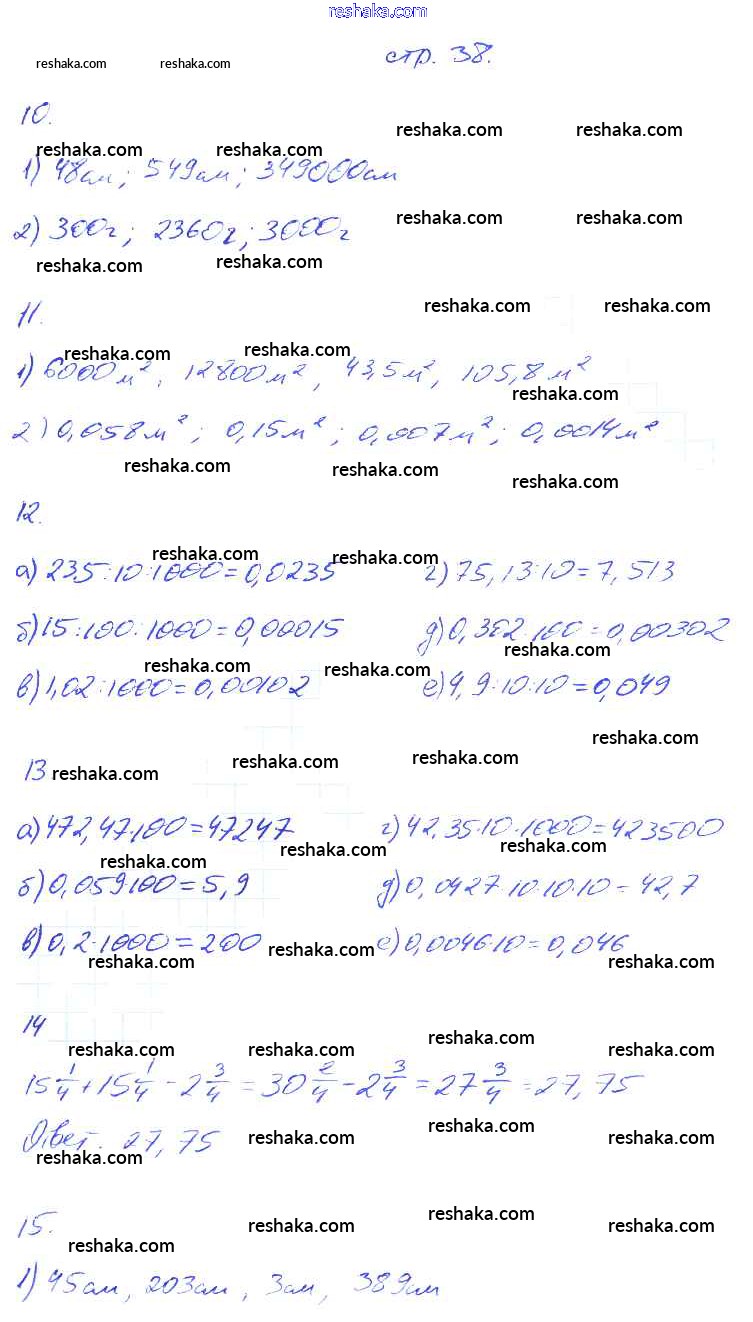 reshaka.com
стр. 38.
reshaka.com reshaka.com
10.
reshaka.com reshaka.com
reshaka.com reshaka.com
1) 48см; 549см; 349000см
reshaka.com reshaka.com
2) 300г; 2360г; 3000г
reshaka.com reshaka.com
11.
reshaka.com reshaka.com
reshaka.com reshaka.com
1) 6000м², 12800м², 43,5м², 105,8м²
reshaka.com
2) 0,058м²; 0,15м²; 0,007м²; 0,0014м²
reshaka.com reshaka.com reshaka.com
12.
reshaka.com reshaka.com
а) 235:10:1000=0,0235 г) 75,13:10=7,513
б) 15:100:1000=0,00015 д) 0,302:100=0,00302
reshaka.com reshaka.com reshaka.com
в) 1,02:1000=0,00102 е) 4,9:10:10=0,049
reshaka.com
13 reshaka.com reshaka.com reshaka.com
а) 472,47·100=47247 г) 42,35·10·1000=423500
reshaka.com reshaka.com reshaka.com
б) 0,059·100=5,9 д) 0,0427·10·10·10=42,7
в) 0,2·1000=200 е) 0,0046·10=0,046
reshaka.com reshaka.com reshaka.com
14
reshaka.com reshaka.com reshaka.com reshaka.com
15 1/4 + 15 1/4 - 2 3/4 = 30 2/4 - 2 3/4 = 27 3/4 = 27,75
Ответ. 27,75
reshaka.com reshaka.com reshaka.com reshaka.com
15.
reshaka.com reshaka.com reshaka.com reshaka.com
1) 45см, 203см, 3см, 389см